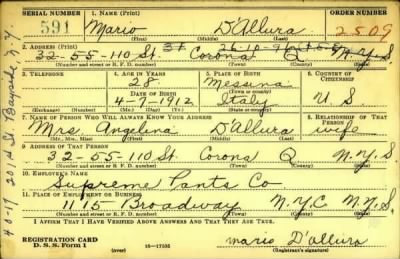 SERIAL NUMBER 1. NAME (Print) ORDER NUMBER
591 Mario D'Allura 2509
(First) (Middle) (Last)
2. ADDRESS (Print)
32-55-110 St. Corona Q N.Y.S
(Number and street or R. F. D. number) (Town) (County) (State)
3. TELEPHONE 4. AGE IN YEARS 5. PLACE OF BIRTH 6. COUNTRY OF CITIZENSHIP
28 Messina
DATE OF BIRTH (Town or county)
4-7-1912 Italy U.S
(Exchange) (Number) (Mo.) (Day) (Yr.) (State or country)
7. NAME OF PERSON WHO WILL ALWAYS KNOW YOUR ADDRESS 8. RELATIONSHIP OF THAT PERSON
Mrs Angelina D'Allura wife
(Mr., Mrs., Miss) (First) (Middle) (Last)
9. ADDRESS OF THAT PERSON
32-55-110 St. Corona Q N.Y.S
(Number and street or R. F. D. number) (Town) (County) (State)
10. EMPLOYER'S NAME
Supreme Pants Co
11. PLACE OF EMPLOYMENT OR BUSINESS
1115 Broadway N.Y.C N.Y.S
(Number and street or R. F. D. number) (Town) (County) (State)
I AFFIRM THAT I HAVE VERIFIED ABOVE ANSWERS AND THAT THEY ARE TRUE.
REGISTRATION CARD
D. S. S. Form 1 (over) 16-17105 Mario D'Allura
(Registrant's signature)
40-19 201 st St Bayside, N.Y